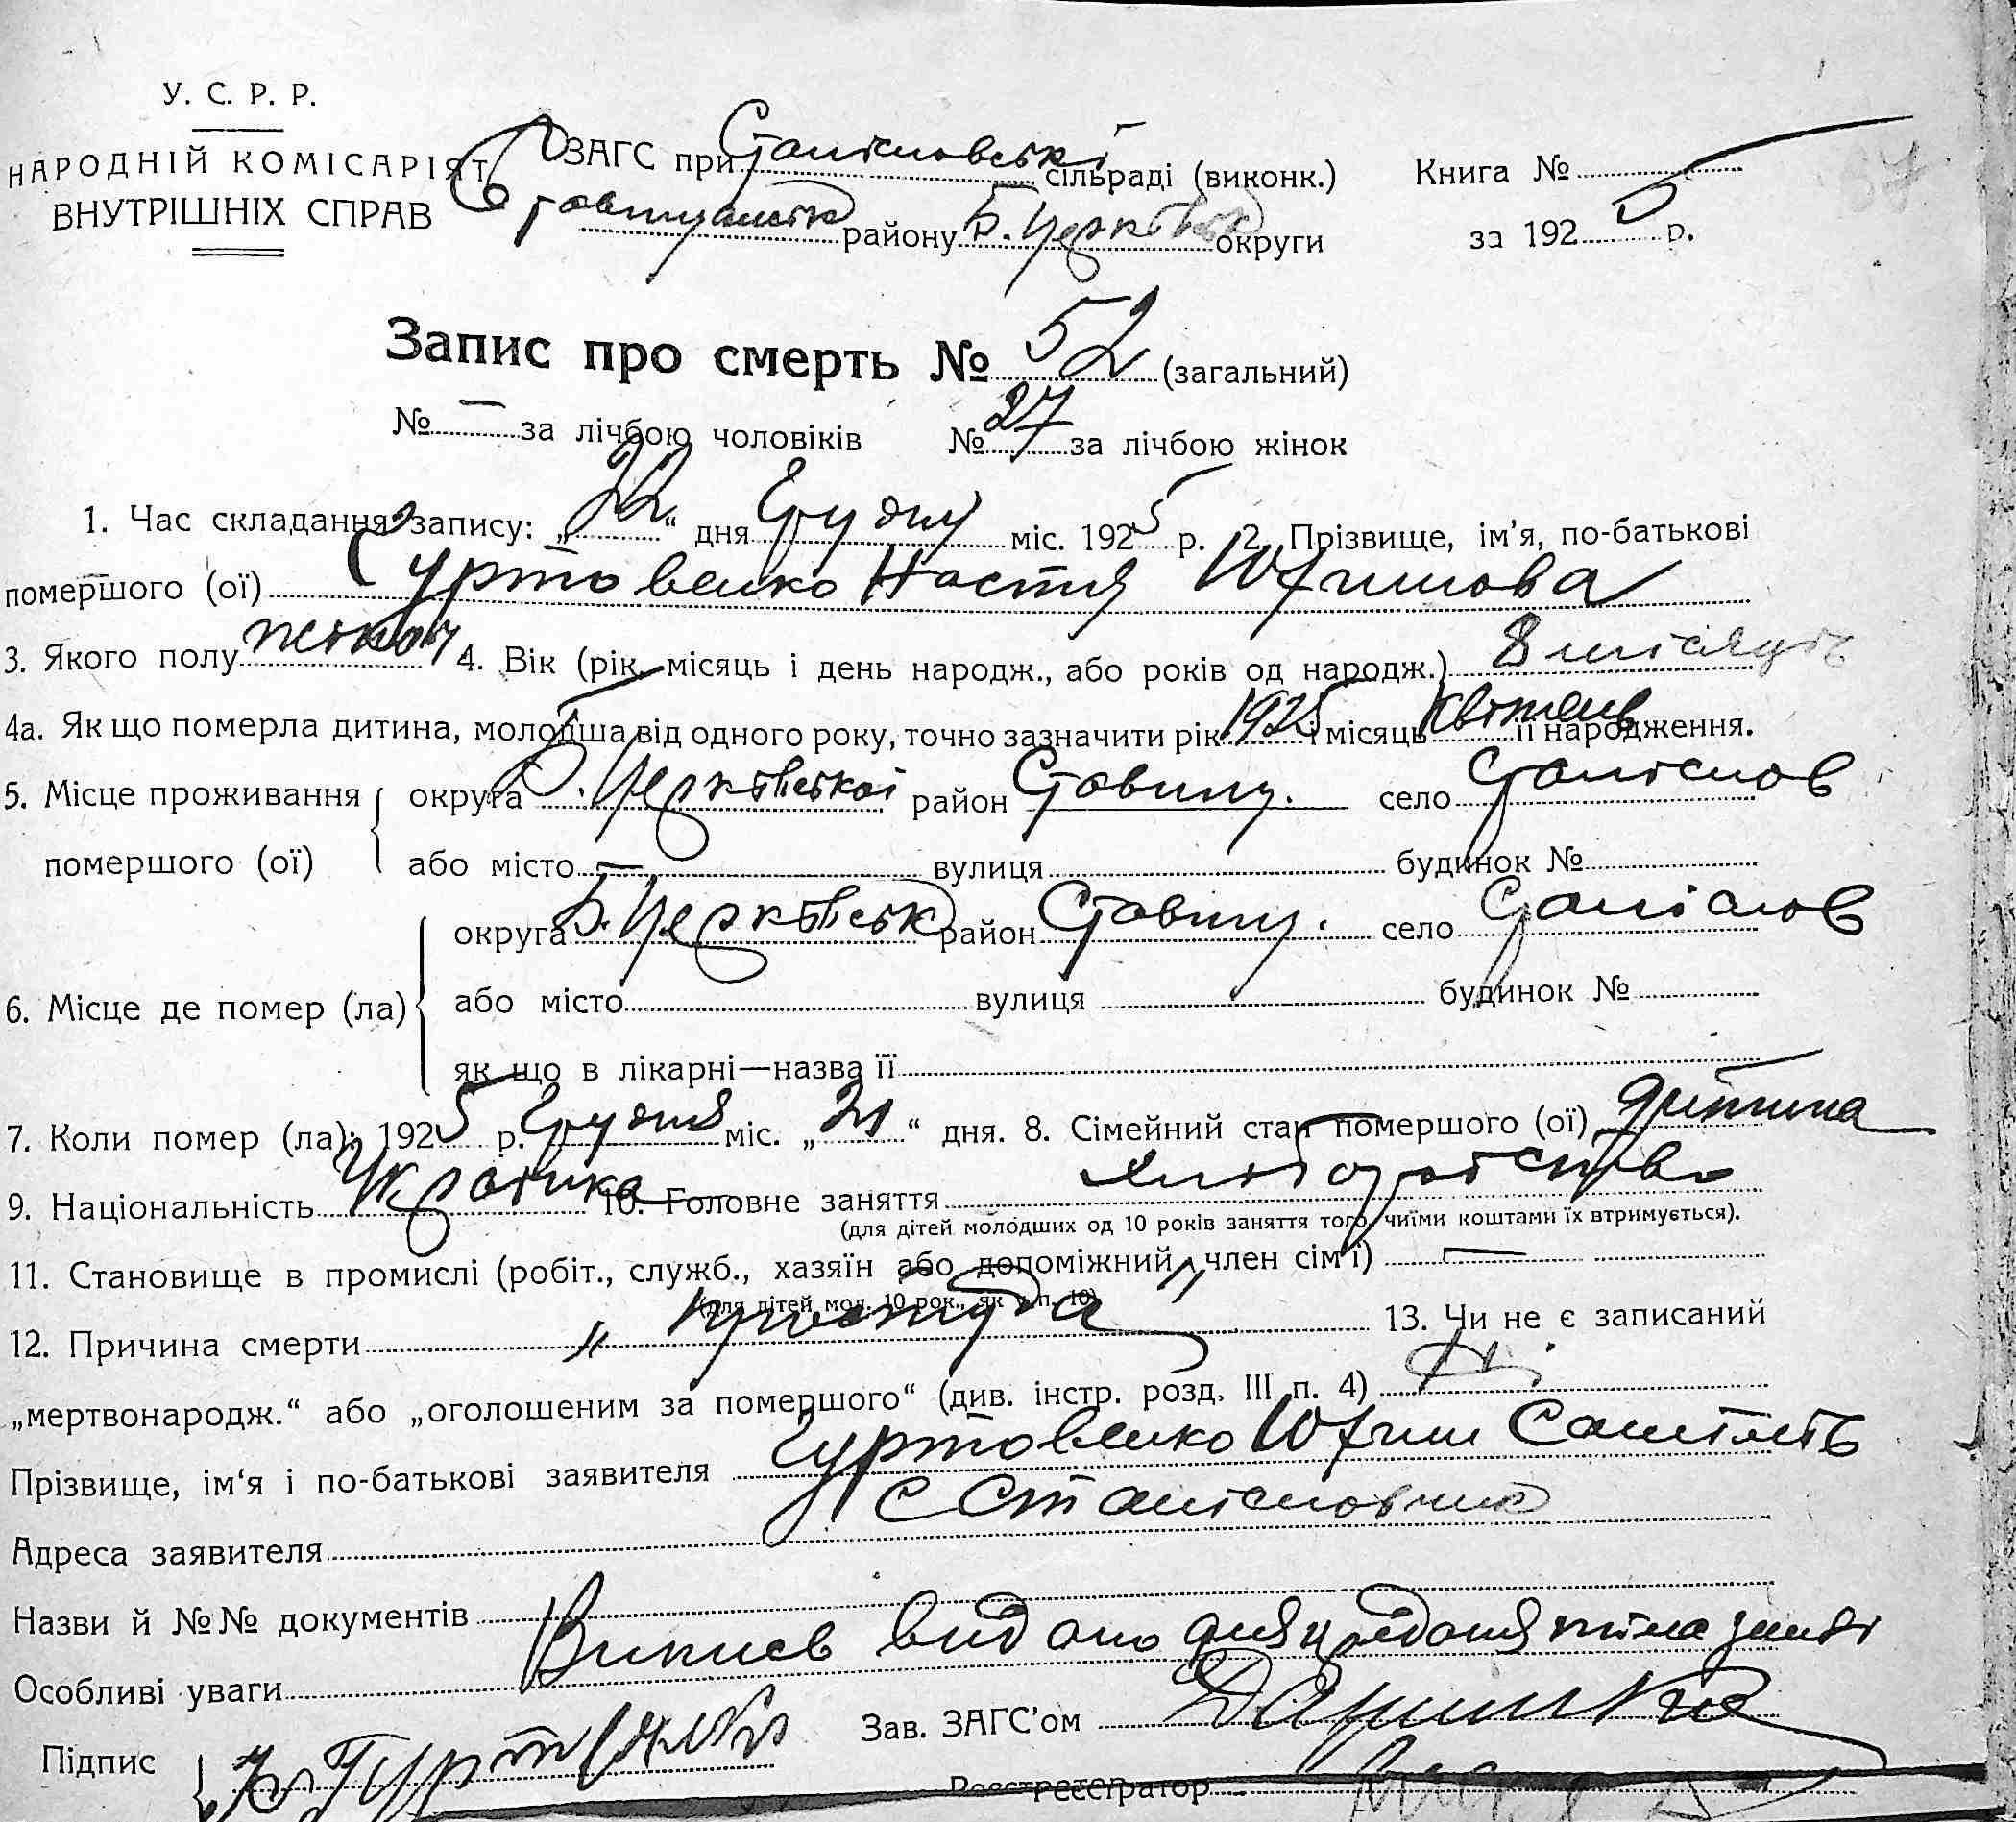 У. С. Р. Р.
НАРОДНІЙ КОМІСАРІЯТ
ВНУТРІШНІХ СПРАВ
ЗАГС при Станіславські сільраді (виконк.)
района Б. Церківськ округи
Книга №
за 1925 р.
Запис про смерть № 52 (загальний)
№ — за лічбою чоловіків № 27 за лічбою жінок
1. Час складання запису: „22“ дня Грудня міс. 1925 р. 2. Прізвище, ім'я, по-батькові
помершого (ої) Гуртовенко Настя Юхимова
3. Якого полу жіноч 4. Вік (рік, місяць і день народж., або років од народж.) 8 місяців
4а. Як що померла дитина, молодша від одного року, точно зазначити рік 1925 і місяць квітень її народження.
5. Місце проживання помершого (ої) округа Б. Церківської район Ставищ. село Станіслов
або місто — вулиця будинок №
6. Місце де помер (ла) округа Б. Церківськ район Ставищ. село Станіслов
або місто вулиця будинок №
як що в лікарні—назва її
7. Коли помер (ла): 1925 р. Грудня міс. „21“ дня. 8. Сімейний стан помершого (ої) дитина
9. Національність Українка 10. Головне заняття хліборобство
(для дітей молодших од 10 років заняття того, чиїми коштами їх втримується).
11. Становище в промислі (робіт., служб., хазяїн або допоміжний член сім'ї) —
(для дітей мол. 10 рок., як п. 10)
12. Причина смерти „простуда“ 13. Чи не є записаний
„мертвонародж.“ або „оголошеним за помершого“ (див. інстр. розд. III п. 4) Ні.
Прізвище, ім'я і по-батькові заявителя Гуртовенко Юхим
Адреса заявителя с Станіславчик
Назви й №№ документів
Особливі уваги Випись видано для
Підпис Ю Гуртовенко Зав. ЗАГС'ом
Реєстратор